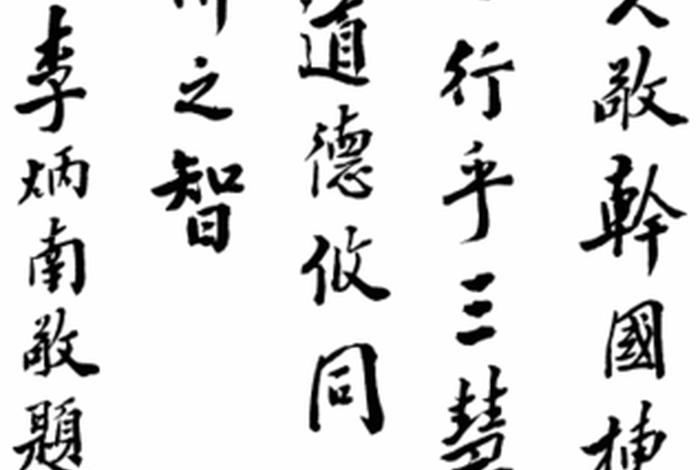 敬幹國棟
行乎三慧
道德攸同
之智
李炳南敬題